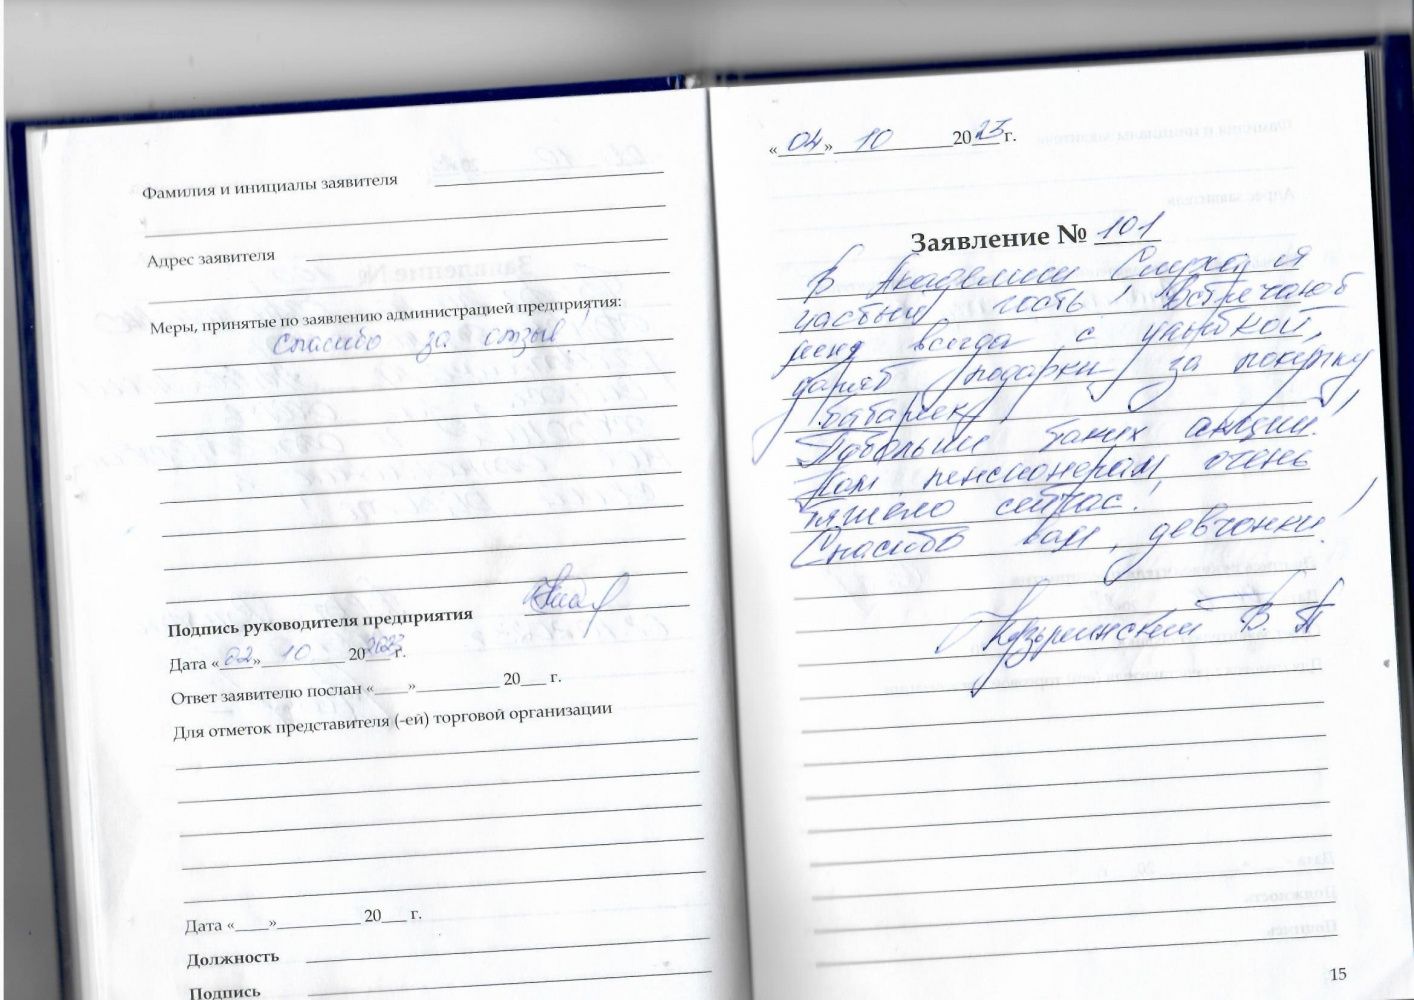 Фамилия и инициалы заявителя
Адрес заявителя
Меры, принятые по заявлению администрацией предприятия:
Спасибо за отзыв!
Подпись руководителя предприятия
Дата «02» 10 202023 г.
Ответ заявителю послан «____»__________ 20___ г.
Для отметок представителя (-ей) торговой организации
Дата «____»__________ 20___ г.
Должность
Подпись
«04» 10 2023 г.
Заявление № 101
В Академии Слуха я
частый гость! Встречают
меня всегда с улыбкой,
дарят подарки за покупку
батареек!
Побольше таких акций!
Нам, пенсионерам, очень
тяжело сейчас!
Спасибо вам, девчонки!
В. А
15